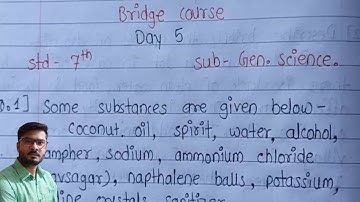 Bridge course
Day 5
std- 7th sub- Gen. science.
.1] Some substances are given below-
coconut, oil, spirit, water, alcohol,
ampher, sodium, ammonium chloride
avsagar), napthalene balls, potassium,